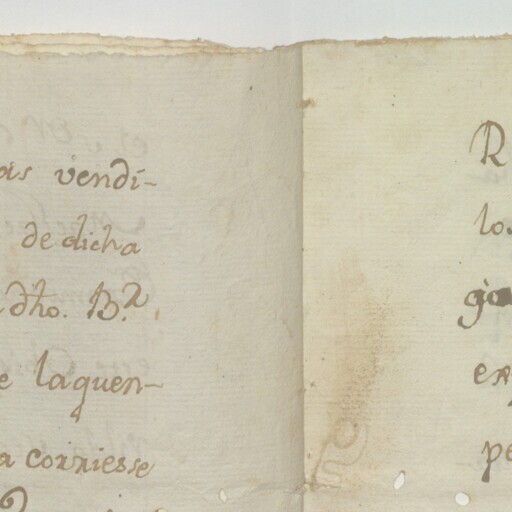 as vendi-
de dicha
dho. B.r
e laquen-
a corriesse
R
los
go
ex
pe